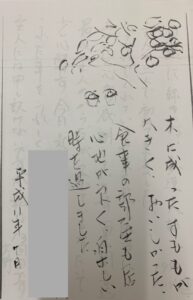 木に成ったすももが
大きく、おいしかった。
食事の部屋も広
心地がよく、消しい
時を過しました
平成11年 日